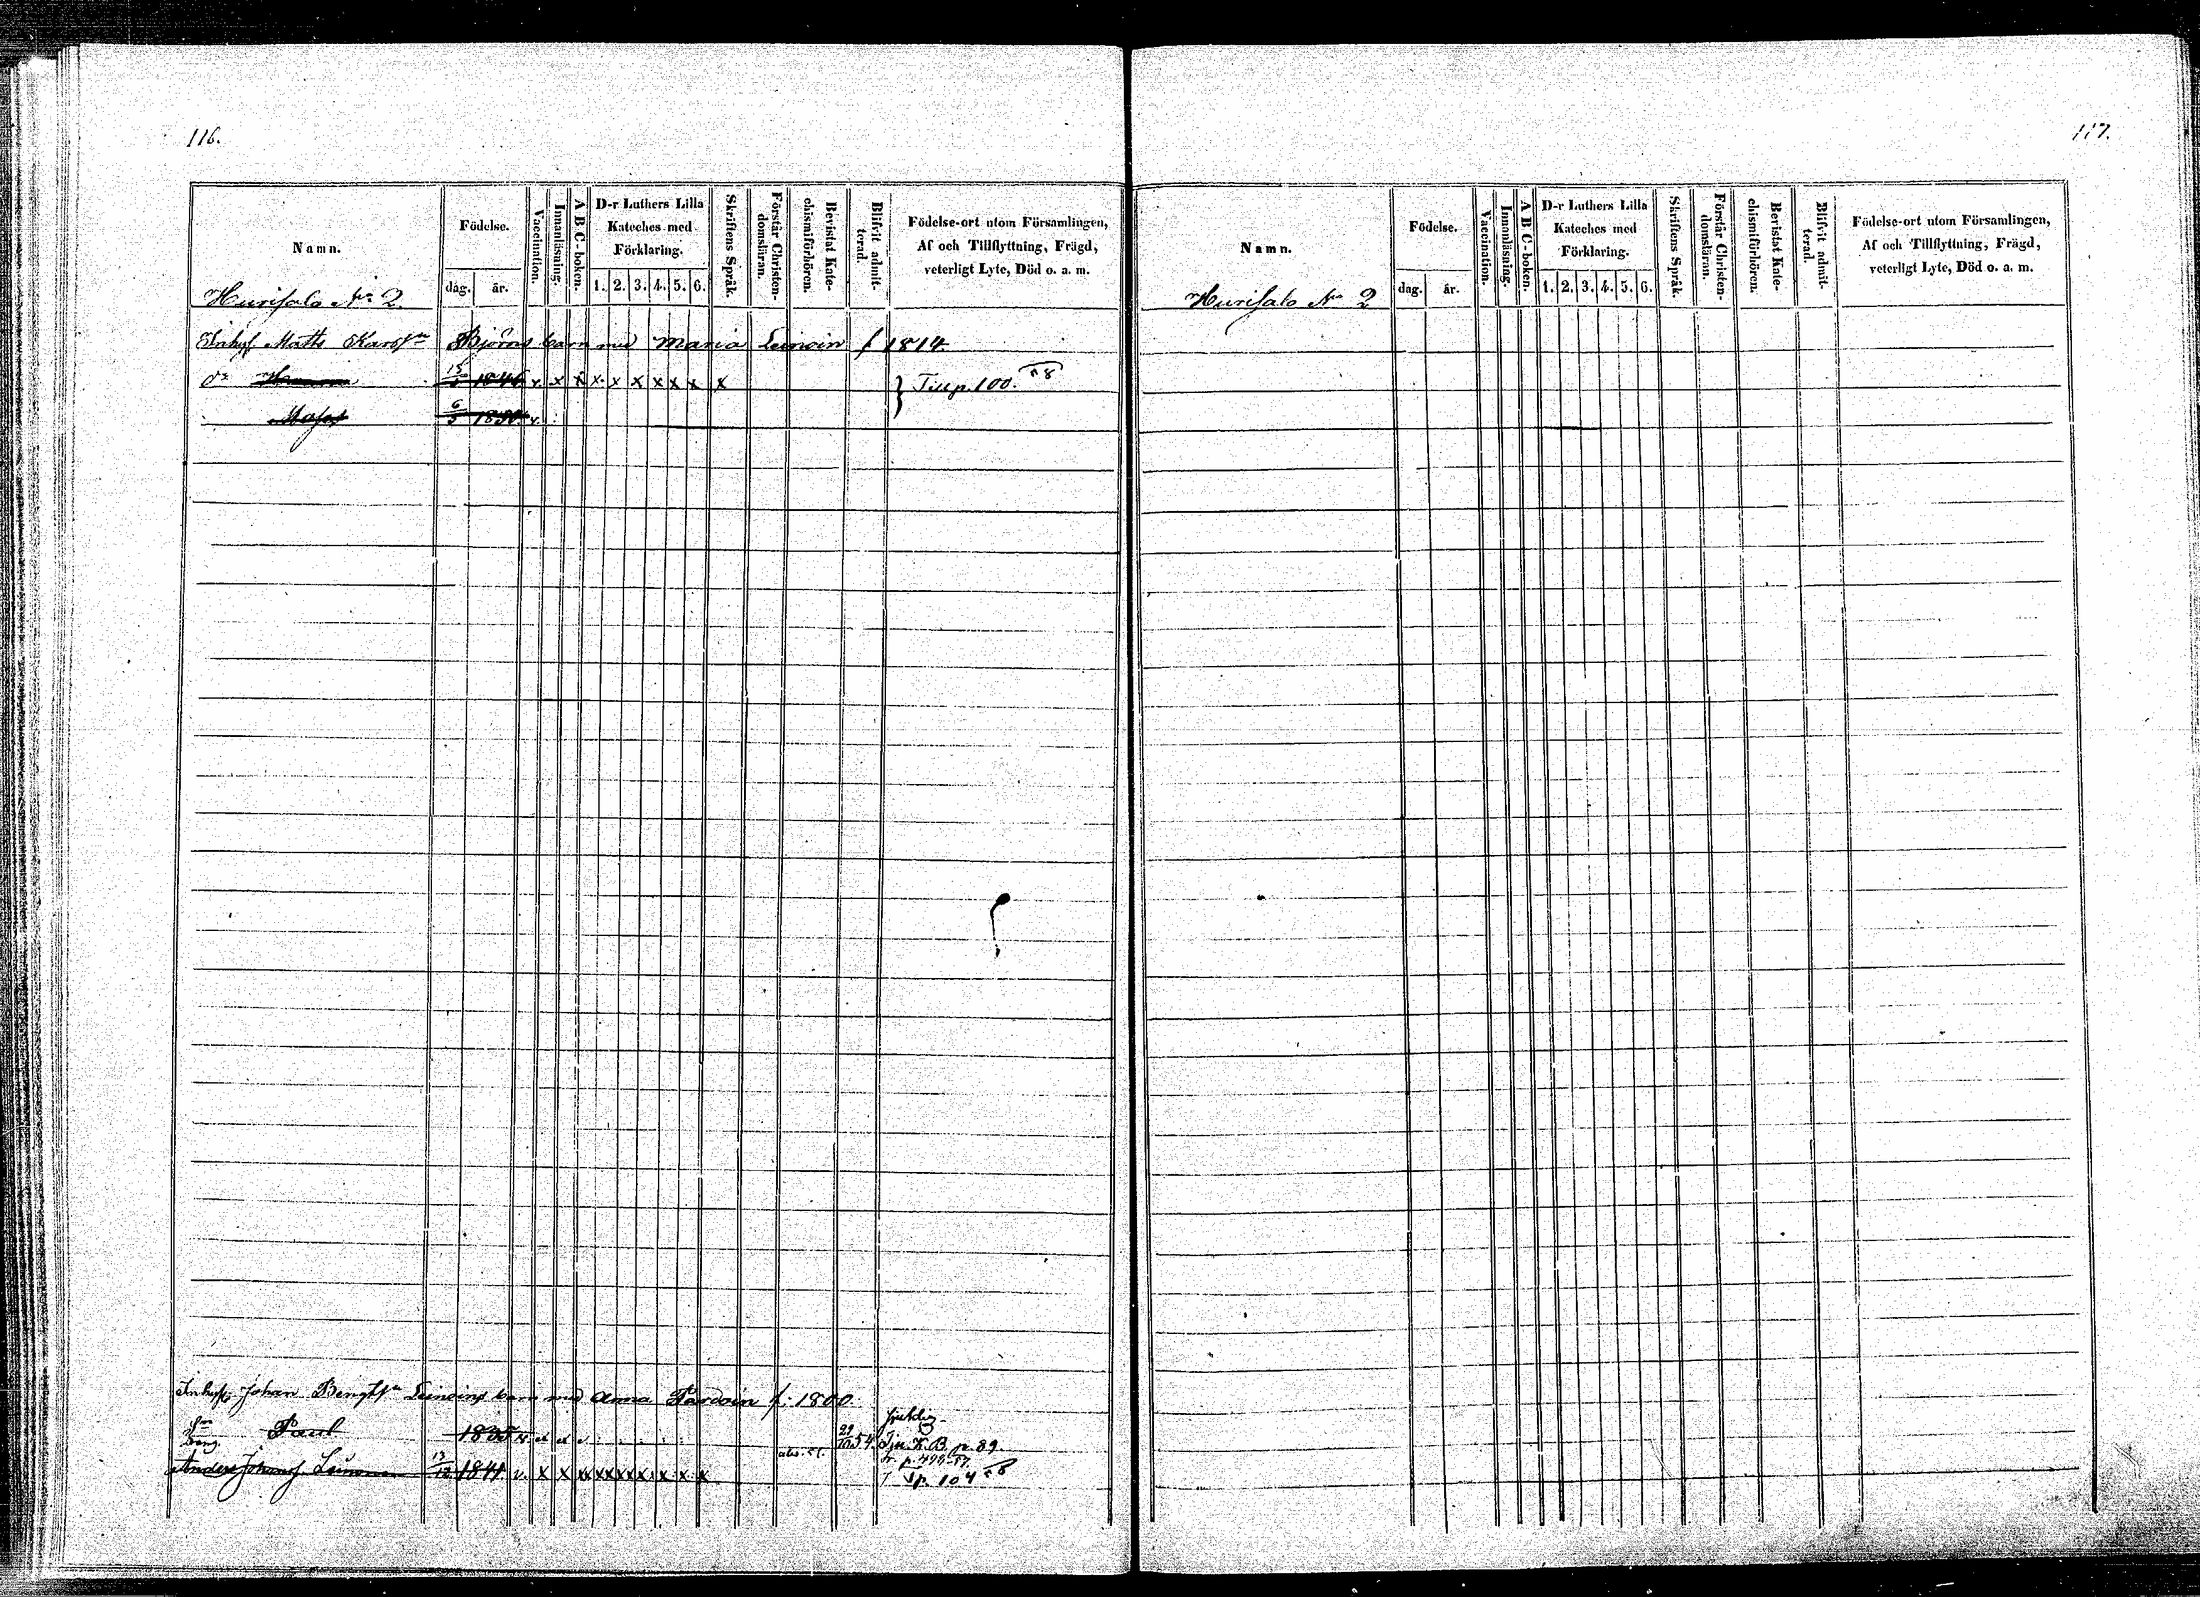 116.
Namn.
Födelse.
dag. år.
Vaccination.
Innanläsning.
A B C-boken.
D-r Luthers Lilla
Kateches med
Förklaring.
1. 2. 3. 4. 5. 6.
Skriftens Språk.
Förstår Christen-
domsläran.
Bevistat Kate-
chismiförhören.
Blifvit admit-
terad.
Födelse-ort utom Församlingen,
Af och Tillflyttning, Frägd,
veterligt Lyte, Död o. a. m.
Hurisalo No 2.
Inhys Matts Björns barn med Maria f 1814.
1846 v. x x x x x x x x x
Till p. 100.
6/5 v.
Inhys. Johan Bengts barn med Anna f. 1800.
Paul 1835 v.
29/10 54. K. B. p. 89.
Anders 1841 v. x x x x x x x x x
p. 104
117.
Namn.
Födelse.
dag. år.
Vaccination.
Innanläsning.
A B C-boken.
D-r Luthers Lilla
Kateches med
Förklaring.
1. 2. 3. 4. 5. 6.
Skriftens Språk.
Förstår Christen-
domsläran.
Bevistat Kate-
chismiförhören.
Blifvit admit-
terad.
Födelse-ort utom Församlingen,
Af och Tillflyttning, Frägd,
veterligt Lyte, Död o. a. m.
Hurisalo No 2